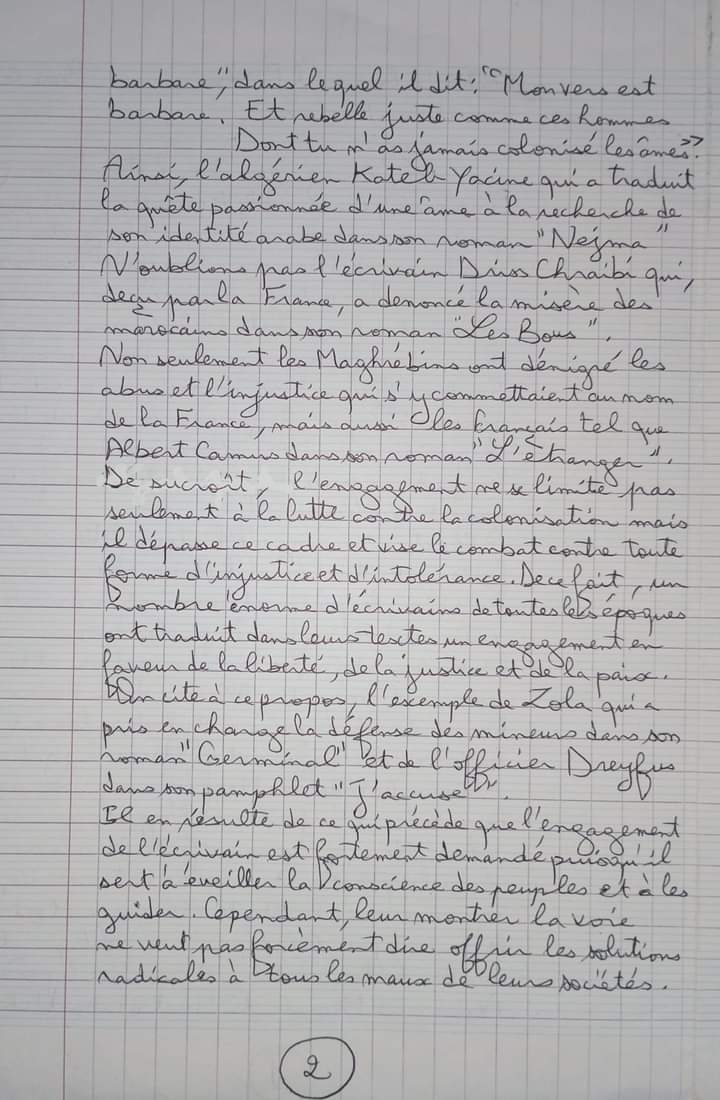 barbare", dans lequel il dit: "Mon vers est
barbare. Et rebelle juste comme ces hommes
Dont tu n'as jamais colonisé les âmes".
Ainsi, l'algérien Kateb Yacine qui a traduit
la quête passionnée d'une âme à la recherche de
son identité arabe dans son roman "Nejma"
N'oublions pas l'écrivain Driss Chraibi qui,
deçu par la France, a denoncé la misère des
marocains dans son roman "Les Boucs".
Non seulement les Maghrébins ont dénigré les
abus et l'injustice qui s'y commettaient au nom
de la France, mais aussi les français tel que
Albert Camus dans son roman "L'étranger".
De sucroît, l'engagement ne se limite pas
seulement à la lutte contre la colonisation mais
il dépasse ce cadre et vise le combat contre toute
forme d'injustice et d'intolérance. De ce fait, un
nombre énorme d'écrivains de toutes les époques
ont traduit dans leurs textes un engagement en
faveur de la liberté, de la justice et de la paix.
On cite à ce propos, l'exemple de Zola qui a
pris en charge la défense des mineurs dans son
roman "Germinal" et de l'officier Dreyfus
dans son pamphlet "J'accuse".
Il en résulte de ce qui précède que l'engagement
de l'écrivain est fortement demandé puisqu'il
sert à éveiller la conscience des peuples et à les
guider. Cependant, leur montrer la voie
ne veut pas forcèment dire offrir les solutions
radicales à tous les maux de leurs sociétés.
2